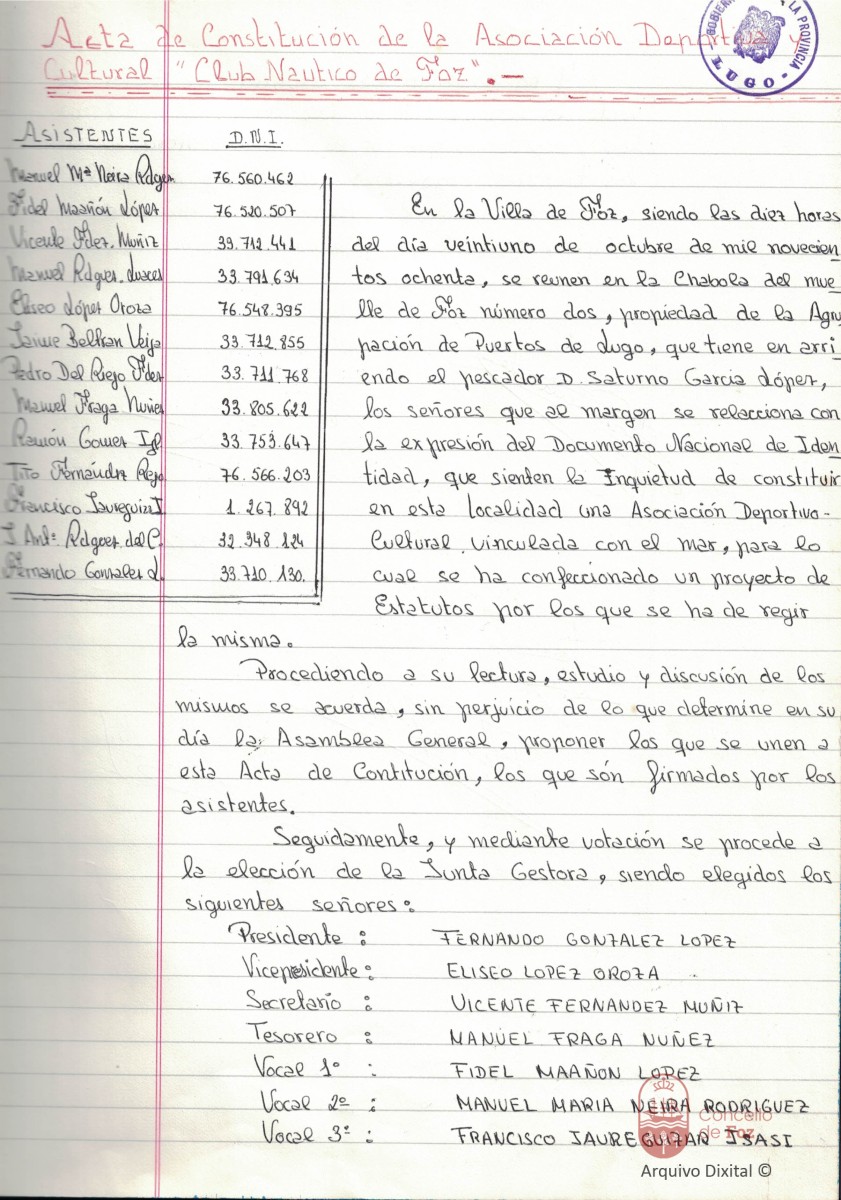 Acta de Constitución de la Asociación Deportiva y
Cultural "Club Nautico de Foz".-
GOBIERNO LA PROVINCIA
LUGO
ASISTENTES D.N.I.
Manuel Mª Neira Rdguez 76.560.462
Fidel Maañón López 76.520.507
Vicente Fdez. Muñiz 39.712.441
Manuel Rdguez. 33.791.634
Eliseo López Oroza 76.548.395
Jaime Beltran Veiga 33.712.855
Pedro Del Riego Fdez 33.711.768
Manuel Fraga Nuñez 33.805.622
Ramón Gomez Igl 33.753.647
Tito Fernández Rego 76.566.203
Francisco Jaureguizar I 1.267.892
J. Antº Rdguez del C. 32.348.124
Fernando Gonzalez L. 33.710.130.
En la Villa de Foz, siendo las diez horas
del día veintiuno de octubre de mil novecien
tos ochenta, se reunen en la Chabola del mue
lle de Foz número dos, propiedad de la Agru
pación de Puertos de Lugo, que tiene en arri
endo el pescador D. Saturno Garcia López,
los señores que al margen se relacciona con
la expresión del Documento Nacional de Iden
tidad, que sienten la Inquietud de constituir
en esta localidad una Asociación Deportivo-
Cultural vinculada con el mar, para lo
cual se ha confeccionado un proyecto de
Estatutos por los que se ha de regir
la misma.
Procediendo a su lectura, estudio y discusión de los
mismos se acuerda, sin perjuicio de lo que determine en su
día la Asamblea General, proponer los que se unen a
esta Acta de Contitución, los que són firmados por los
asistentes.
Seguidamente, y mediante votación se procede a
la elección de la Junta Gestora, siendo elegidos los
siguientes señores:
Presidente : FERNANDO GONZALEZ LOPEZ
Vicepresidente : ELISEO LOPEZ OROZA
Secretario : VICENTE FERNANDEZ MUÑIZ
Tesorero : MANUEL FRAGA NUÑEZ
Vocal 1º : FIDEL MAAÑON LOPEZ
Vocal 2º : MANUEL MARIA NEIRA RODRIGUEZ
Vocal 3º : FRANCISCO JAUREGUIZAR ISASI
Concello
de Foz
Arquivo Dixital ©